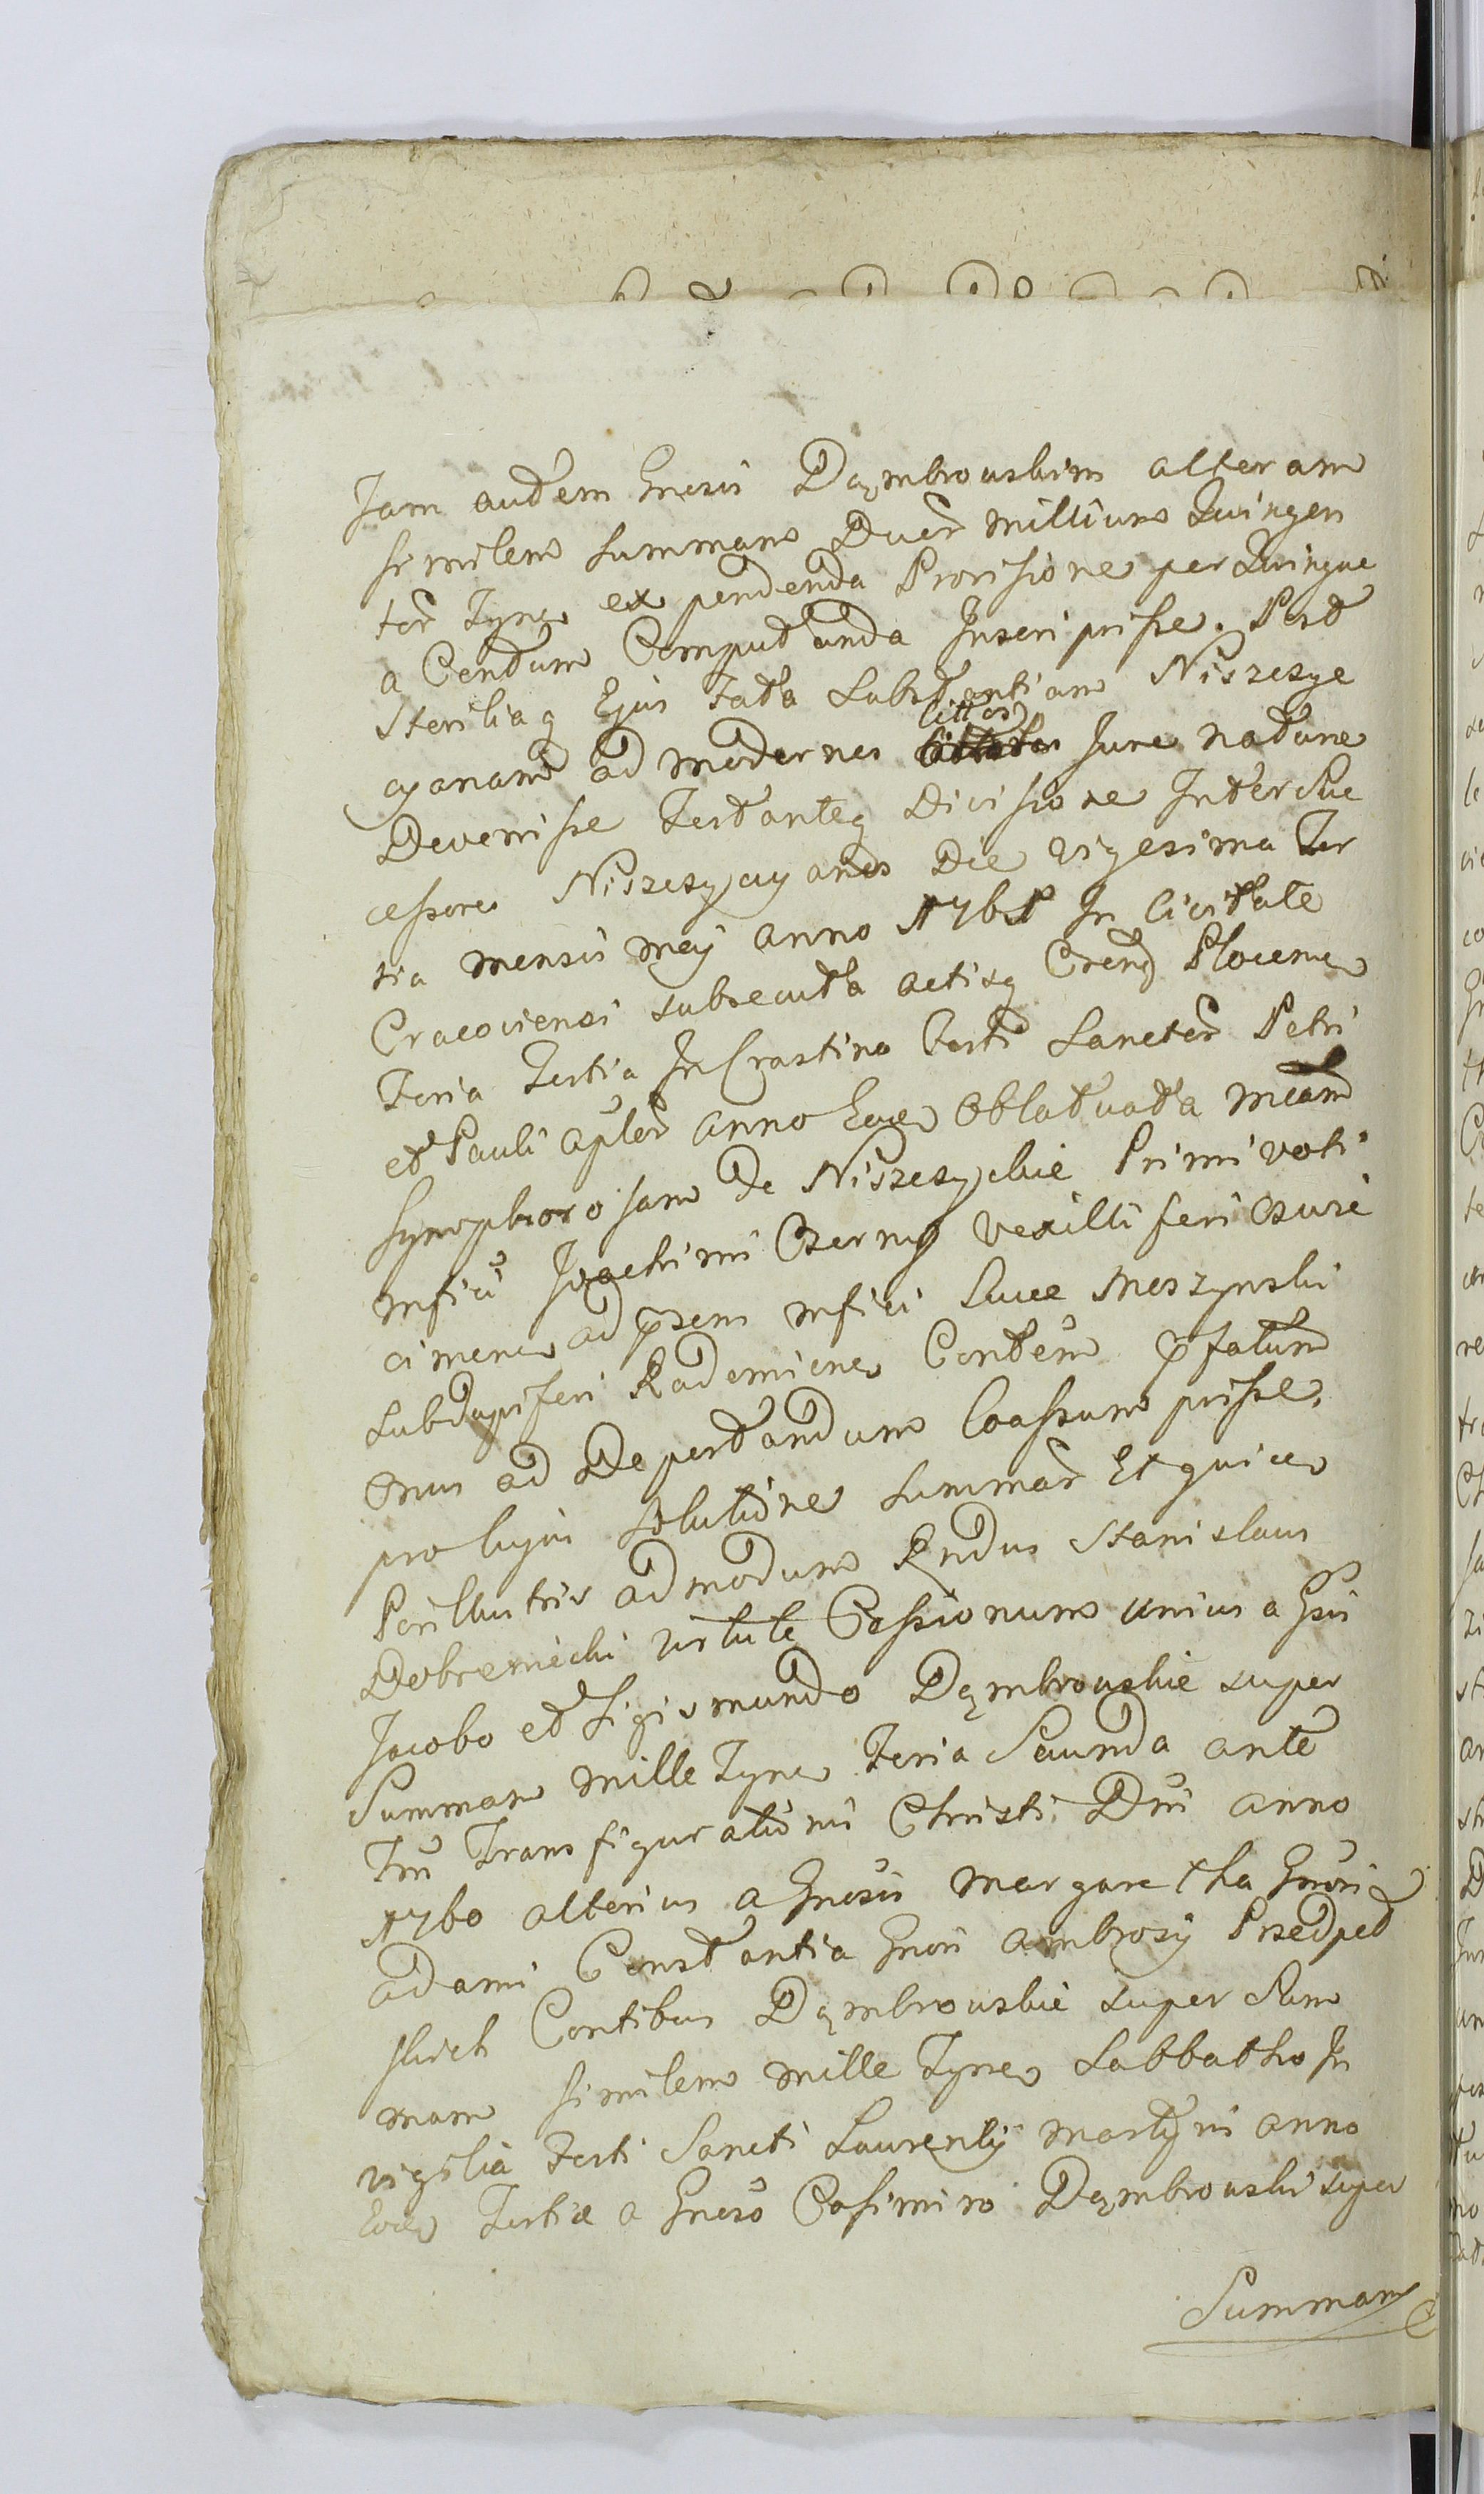 Jam autem Gnesis Dąmbrouskim alteram
similem summam Duor Millium Quingen
tor Tyne ex pendenda Provisione per Quinque
a Centum Computanda Inscripsisse. Post
Steriliaq Ejus Fata Substantiam Niszczyc
cyanam ad modernos littos Jure natune
Devenisse Testanteq Divisione Inter Suc
cessores Niszczycyanos Die vigesima Ter
tia Mensis Maÿ Anno 1761 In Civitate
Cracoviensi subsecuta Actisq Plocen
Feria Tertia In Crastino Festi Sanctor Petri
et Pauli Aplor Anno Eod Oblatuata
Symphorosam De Niszczyckie Primi voti
Mfici Joachimi Czerny Vexilliferi Osvie
cimen ad psens Mfici Luce Moszynski
Subdapiferi Radomien Contem pfatum
Onus ad Deportandum Coassumpsisse.
pro hujus Solutione Summar Et quice
Perillustris admodum Rndus Stanislaus
Dobremicki virtute Cessionum unius a Gsis
Jacobo et Sigismundo Dąmbrouskie super
Summam Mille Tyne Feria Secunda ante
Ftu Transfigurationis Christi Dni Anno
1760 alterius a Gnesis Margaretha Gnosi
Adami Constantia Gnosi Ambrosÿ Przedpeł
skich Contibus Dąmbrouskie super Sum
mam similem Mille Tyne Sabbatho In
vigilia Festi Sancti Laurentÿ Martyris Anno
Eode Tertiæ a Gneso Casimiro Dąmbrouski super
Summam